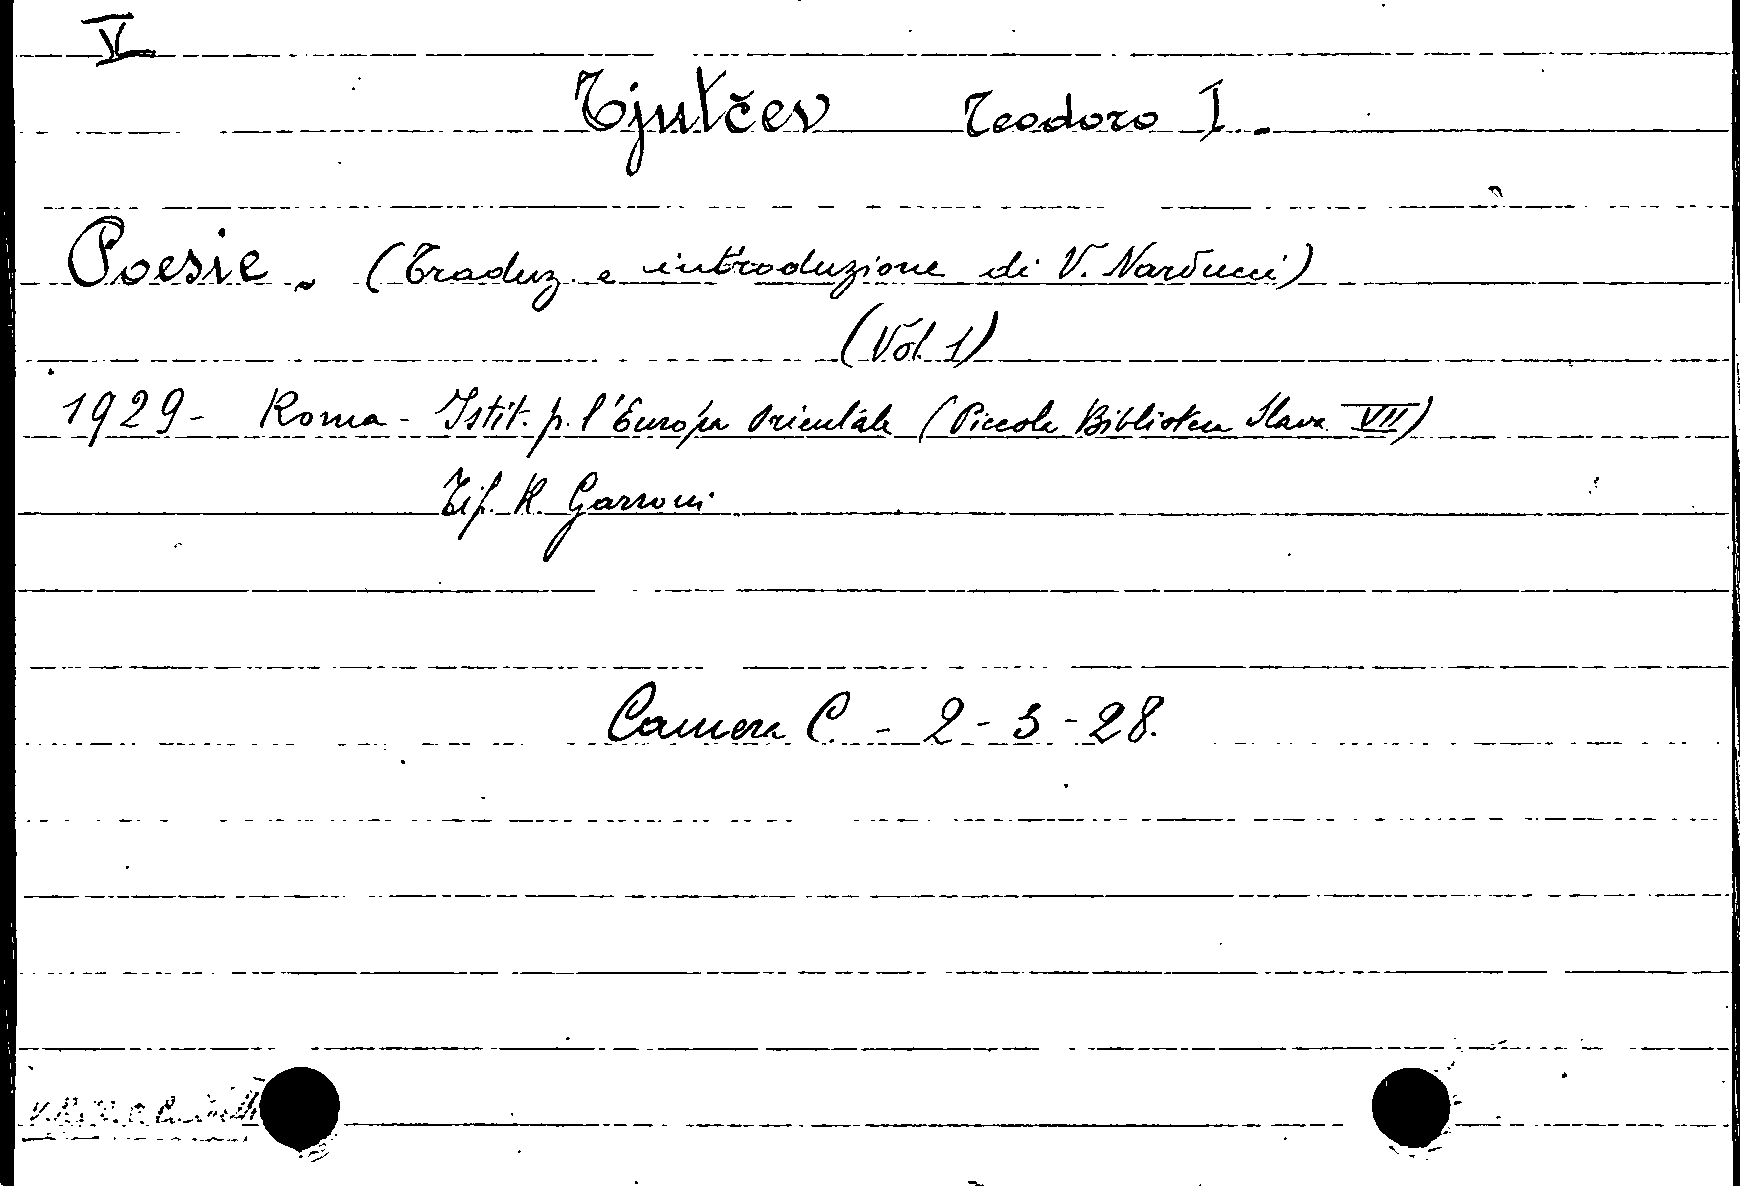 V
Tjutčev Teodoro I.
Poesie. (Traduz. e introduzione di V. Narducci)
(Vol. 1)
1929 - Roma - Istit. p. l'Europa Orientale (Piccola Biblioteca Slava VII)
Tip. R. Garroni
Camera C. - 2 - 3 - 28.